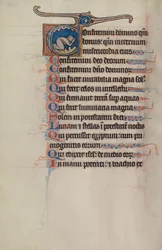 Confitemini domino qm
bonus: qm in eternum
misericordia eius
Confitemini deo deorum
Confitemini dño dominor
Qui facit mirabilia magna sol
Qui fecit celos in intellectu
Qui firmavit terrā sup aquas
Qui fecit luminaria magna
Solem in potestatem diei
Lunam & stellas ī potestatē noctis
Qui percussit egyptum cum pri
mogenitis eorum
Qui eduxit isrl de medio eius
In manu potenti & brachio ex